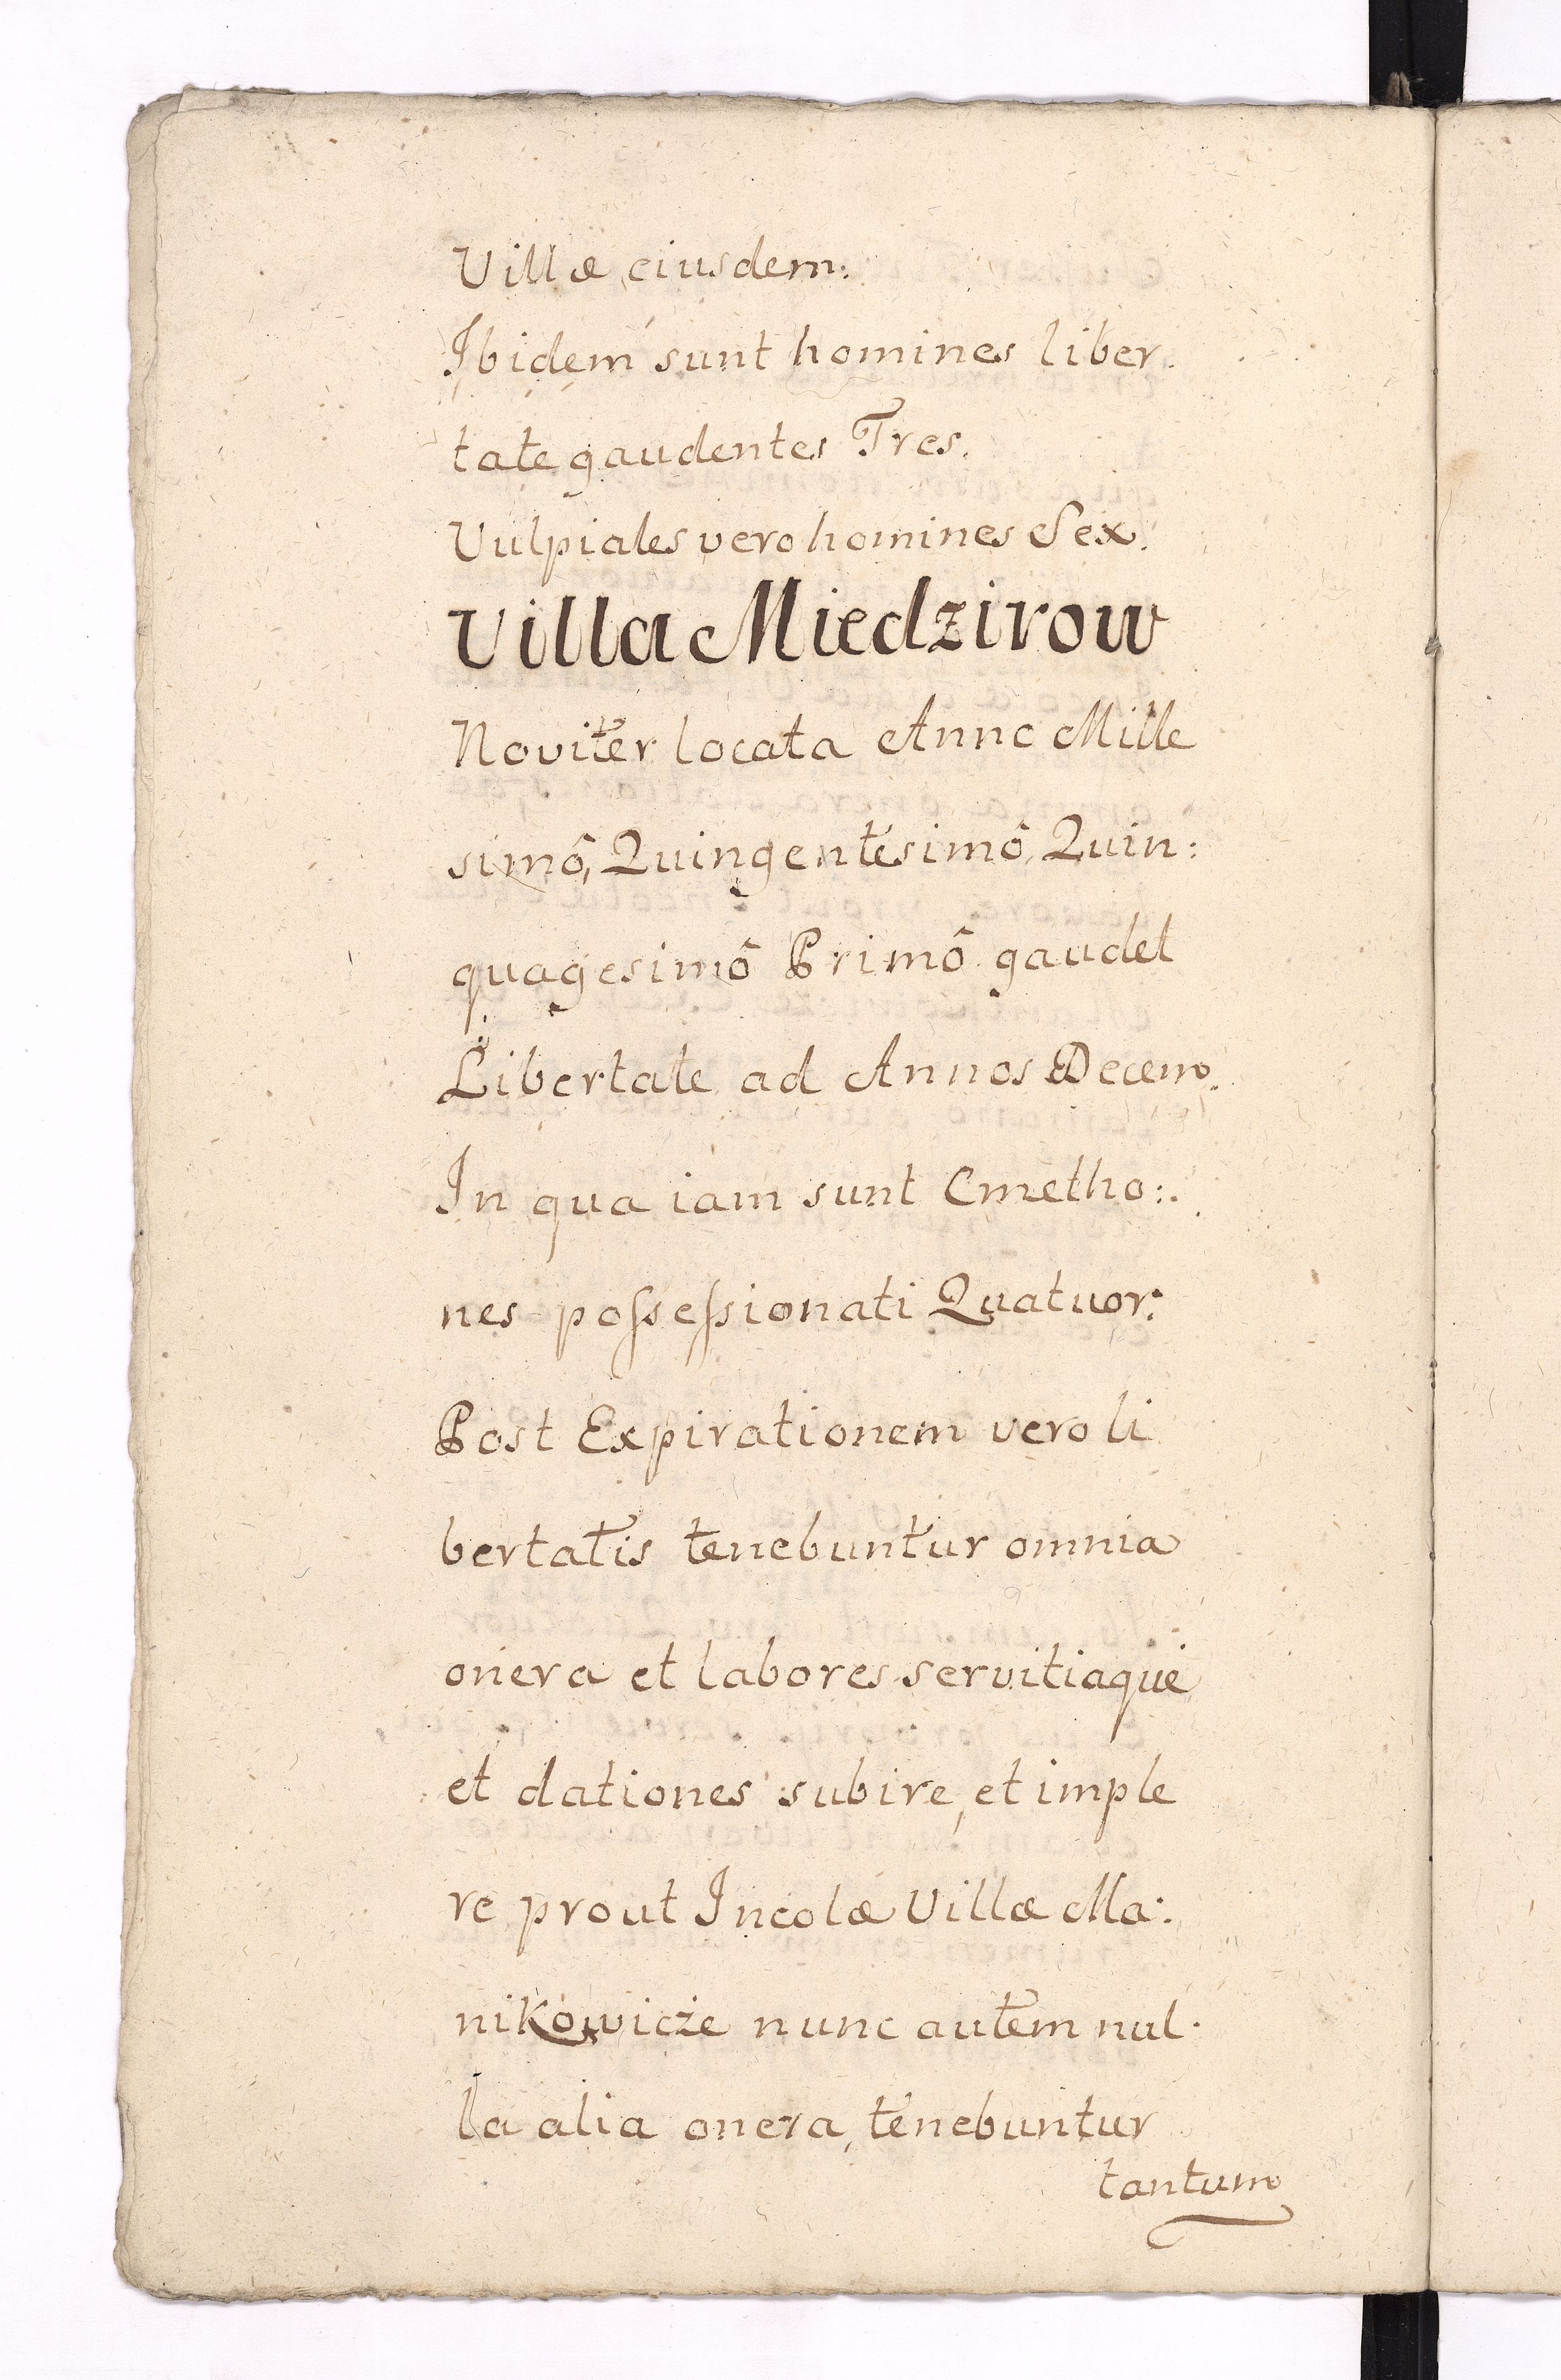 Villæ eiusdem:
Ibidem sunt homines liber
tate gaudentes Tres.
Vulpiales vero homines Sex.
Villa Miedzirow
Noviter locata Anno Mille
simô, Quingentesimô, Quin:
quagesimô Primô gaudet
Libertate ad Annos Decem.
In qua iam sunt Cmetho:
nes possessionati Quatuor:
Post Expirationem vero li
bertatis tenebuntur omnia
onera et labores servitiaque
et dationes subire, et imple
re prout Incolæ Villæ Ma:
nikowicże nunc autem nul
la alia onera, tenebuntur
tantum